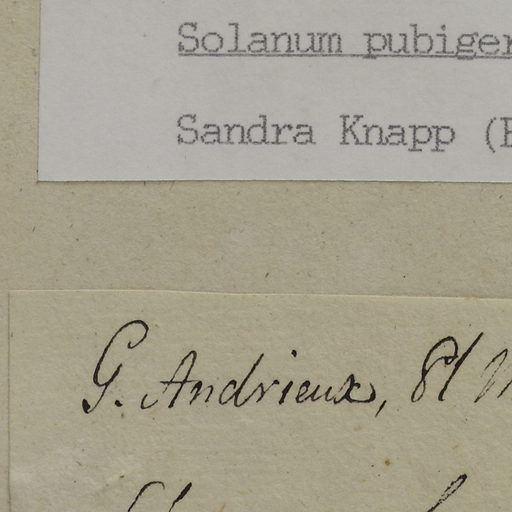 Solanum pubiger
Sandra Knapp (
G. Andrieux, Pl